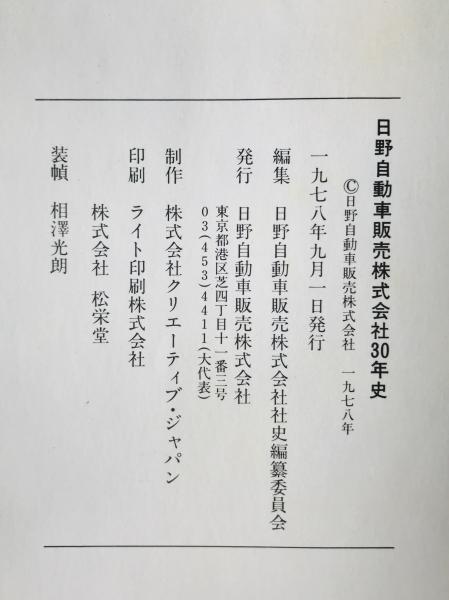 日野自動車販売株式会社30年史
©日野自動車販売株式会社 一九七八年
一九七八年九月一日発行
編集 日野自動車販売株式会社社史編纂委員会
発行 日野自動車販売株式会社
東京都港区芝四丁目十一番三号
03(453)4411(大代表)
制作 株式会社クリエーティブ・ジャパン
印刷 ライト印刷株式会社
株式会社 松栄堂
装幀 相澤光朗